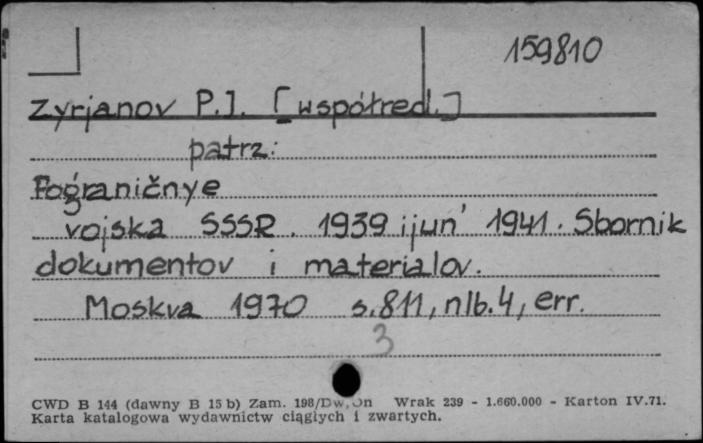 159810
Zyrjanov P.I. [współred.]
patrz:
Pograničnye
vojska SSSR. 1939 ijun' 1941. Sbornik
dokumentov i materialov.
Moskva 1970 s.811, nlb.4, err.
3
CWD B 144 (dawny B 15 b) Zam. 198/Dw, On Wrak 239 - 1.660.000 - Karton IV.71.
Karta katalogowa wydawnictw ciągłych i zwartych.